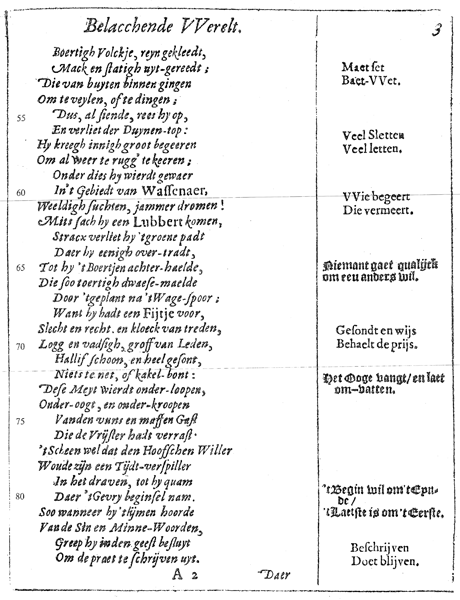 Belacchende VVerelt. 3
Boertigh Volckje, reyn gekleedt,
Mack en statigh uyt-gereedt;
Die van buyten binnen gingen
Om te veylen, of te dingen;
55 Dus, al siende, rees hy op,
En verliet der Duynen-top:
Hy kreegh innigh groot begeeren
Om al weer te rugg' te keeren;
Onder dies hy wierdt gewaer
60 In't Gebiedt van Wassenaer,
Weeldigh suchten, jammer dromen!
Mits sach hy een Lubbert komen,
Stracx verliet hy 'tgroene padt
Daer hy eenigh over-tradt,
65 Tot hy 't Boertjen achter-haelde,
Die soo toertigh dwaese-maelde
Door 'tgeplant na 't Wage-spoor;
Want hy hadt een Fijtje voor,
Slecht en recht. en kloeck van treden,
70 Logg en vadsigh, groff van Leden,
Hallif schoon, en heel gesont,
Niets te net, of kakel-bont:
Dese Meyt wierdt onder-loopen,
Onder-oogt, en onder-kroopen
75 Vanden vuns en maffen Gast
Die de Vrijster hadt verrast.
't Scheen wel dat den Hooffschen Willer
Woude zijn een Tijdt-verspiller
In het draven, tot hy quam
80 Daer 'tGevry beginsel nam.
Soo wanneer hy 'tlijmen hoorde
Van de Sin en Minne-Woorden,
Greep hy inden geest besluyt
Om de praet te schrijven uyt.
A 2 Daer
Maet set
Baet-VVet.
Veel Sletten
Veel letten.
VVie begeert
Die vermeert.
Niemant gaet qualijck
om een anders wil.
Gesondt en wijs
Behaelt de prijs.
Het Ooge vangt/ en laet
om-vatten.
't Begin wil om 't Eyn-
de/
't Laetste is om 't Eerste.
Beschrijven
Doet blijven.